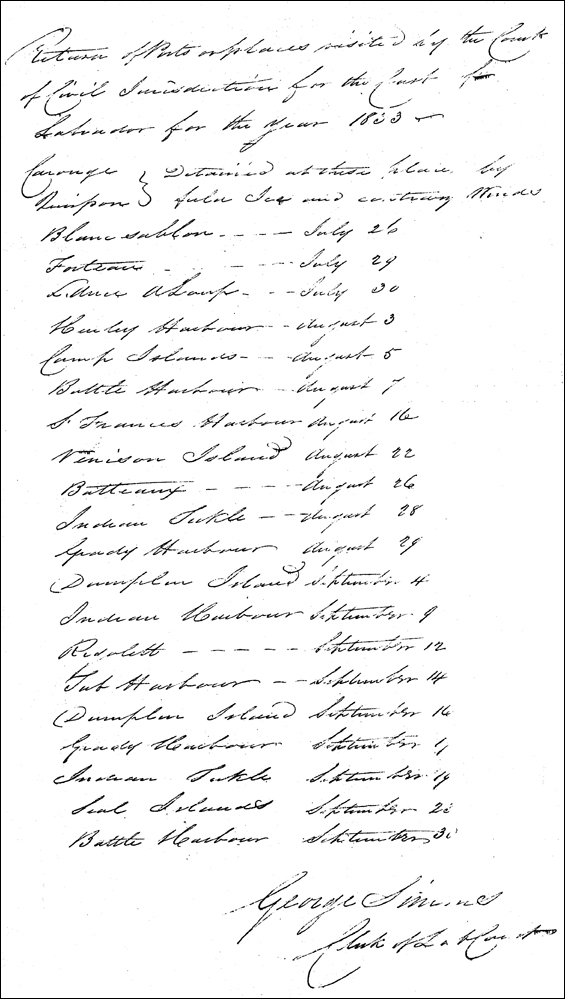 Return of Ports or places visited by the Court
of Civil Jurisdiction for the Coast of
Labrador for the Year 1833
Carouge } Detained at these places by
Quirpon } field Ice and contrary Winds
Blancsablon - - - - July 26
Forteau - - - - July 29
L'Ance A Loup - - - July 30
Harley Harbour - - August 3
Camp Islands - - August 5
Battle Harbour - August 7
St Frances Harbour August 16
Venison Island August 22
Batteaux - - - - August 26
Indian Tickle - - August 28
Grady Harbour August 29
Dumplin Island September 4
Indian Harbour September 9
Rigolett - - - - - September 12
Tub Harbour - - September 14
Dumplin Island September 16
Grady Harbour September
Indian Tickle September 19
Seal Islands September
Battle Harbour September
George Simms
Clerk of Lab Court